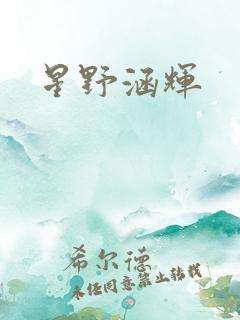 星野涵輝
希尔德
未经同意禁止转载